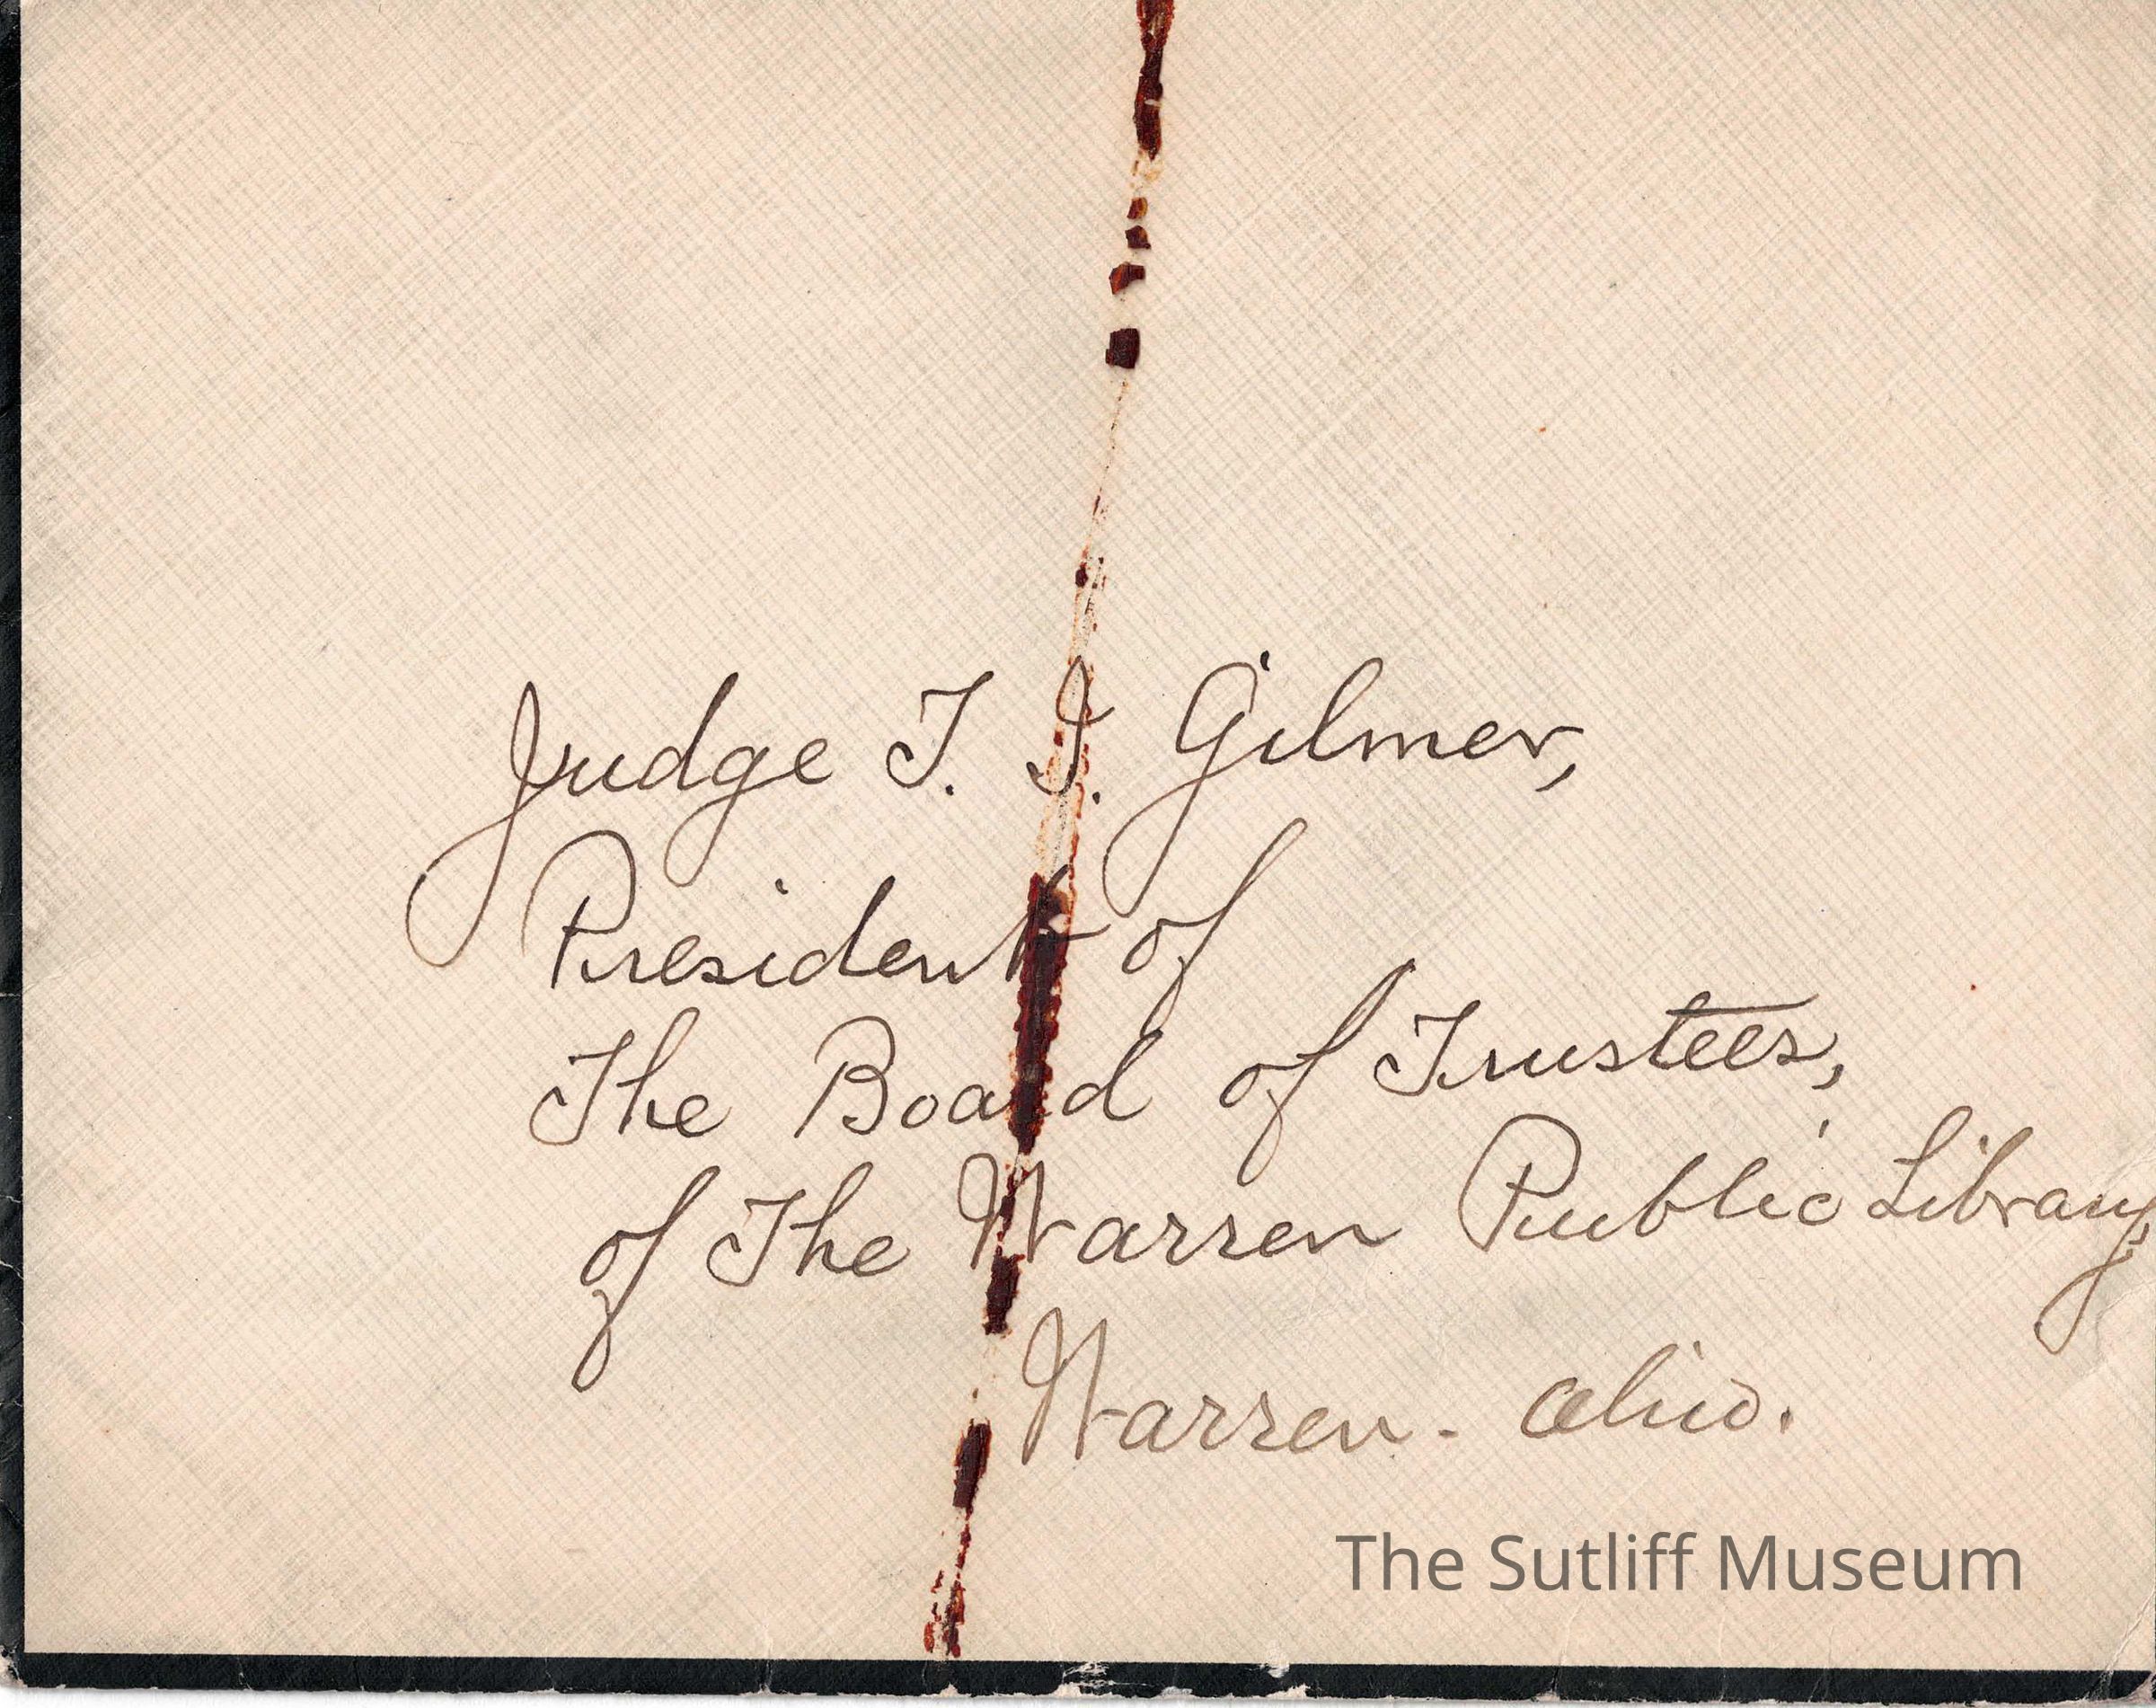 Judge T. I. Gilmer,
President of
The Board of Trustees,
of The Warren Public Library,
Warren - Ohio.
The Sutliff Museum